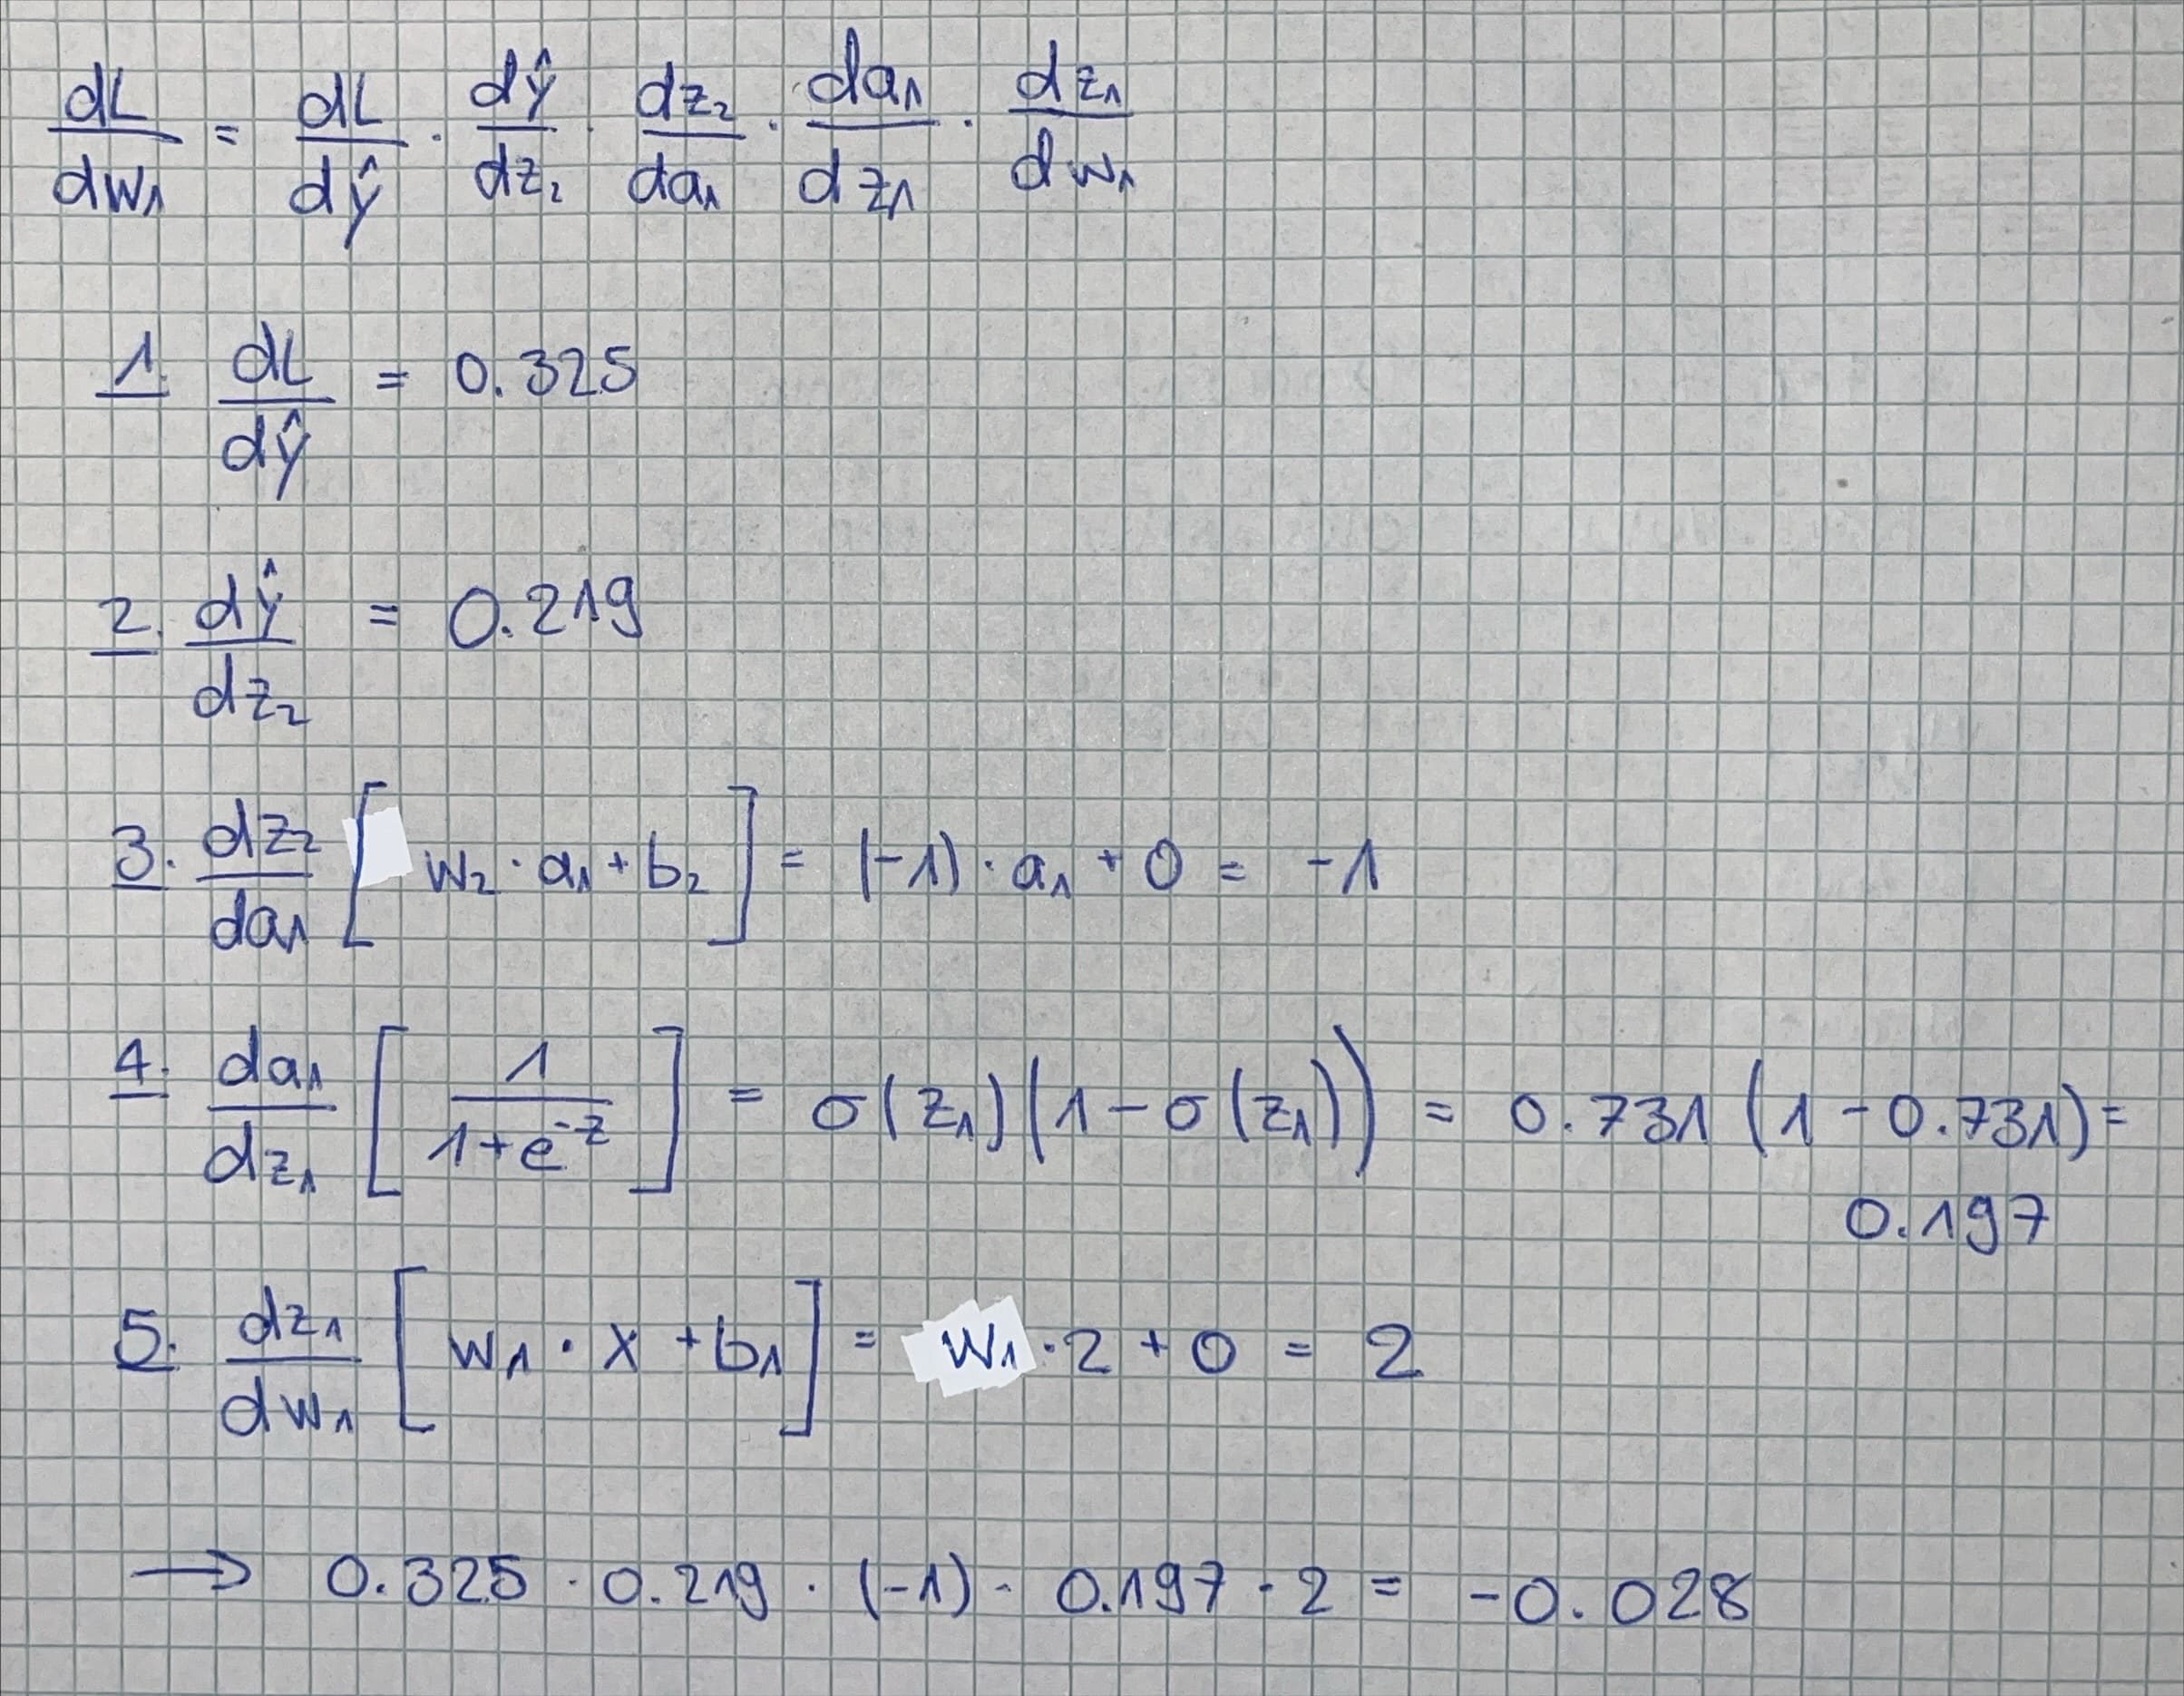 dL/dw₁ = dL/dŷ · dŷ/dz₂ · dz₂/da₁ · da₁/dz₁ · dz₁/dw₁
1. dL/dŷ = 0.325
2. dŷ/dz₂ = 0.219
3. dz₂/da₁ [w₂ · a₁ + b₂] = (-1) · a₁ + 0 = -1
4. da₁/dz₁ [1/(1+e^-z)] = σ(z₁)(1 - σ(z₁)) = 0.731 (1 - 0.731) =
0.197
5. dz₁/dw₁ [w₁ · x + b₁] = w₁ · 2 + 0 = 2
→ 0.325 · 0.219 · (-1) · 0.197 · 2 = -0.028